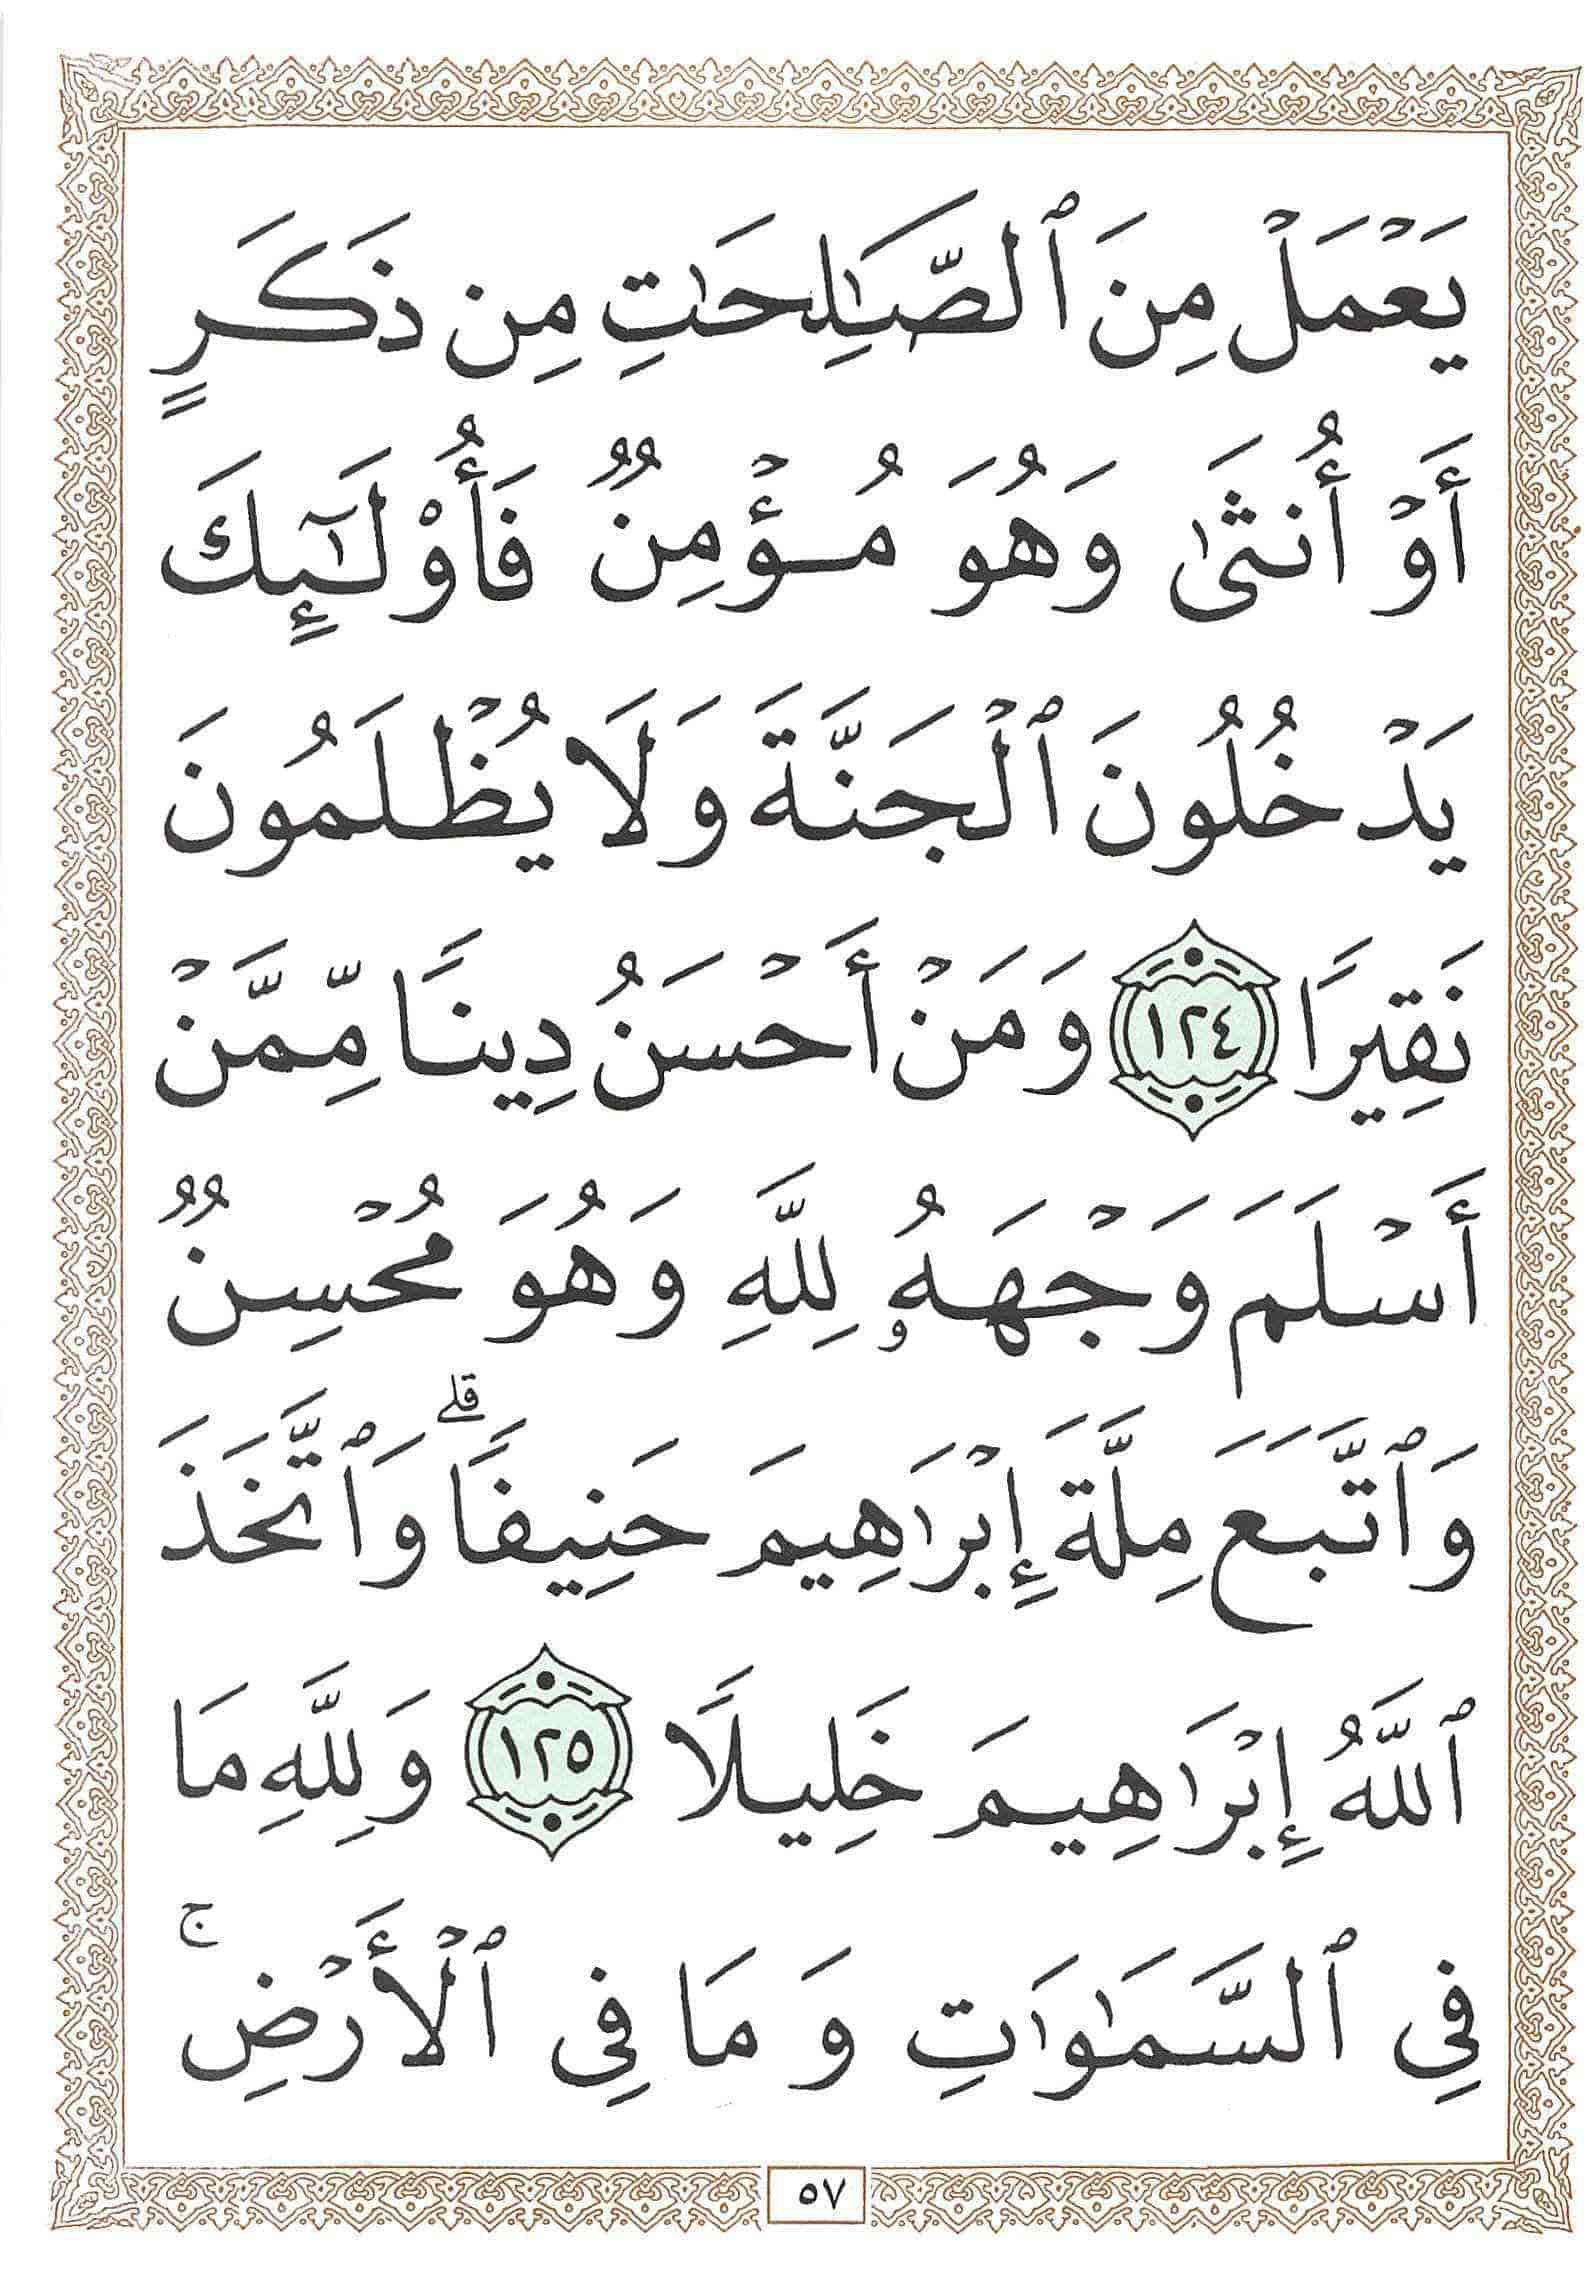 يَعْمَلْ مِنَ ٱلصَّٰلِحَٰتِ مِن ذَكَرٍ
أَوْ أُنثَىٰ وَهُوَ مُؤْمِنٌ فَأُو۟لَٰٓئِكَ
يَدْخُلُونَ ٱلْجَنَّةَ وَلَا يُظْلَمُونَ
نَقِيرًا ١٢٤ وَمَنْ أَحْسَنُ دِينًا مِّمَّنْ
أَسْلَمَ وَجْهَهُۥ لِلَّهِ وَهُوَ مُحْسِنٌ
وَٱتَّبَعَ مِلَّةَ إِبْرَٰهِيمَ حَنِيفًا ۗ وَٱتَّخَذَ
ٱللَّهُ إِبْرَٰهِيمَ خَلِيلًا ١٢٥ وَلِلَّهِ مَا
فِى ٱلسَّمَٰوَٰتِ وَمَا فِى ٱلْأَرْضِ ۚ
٥٧